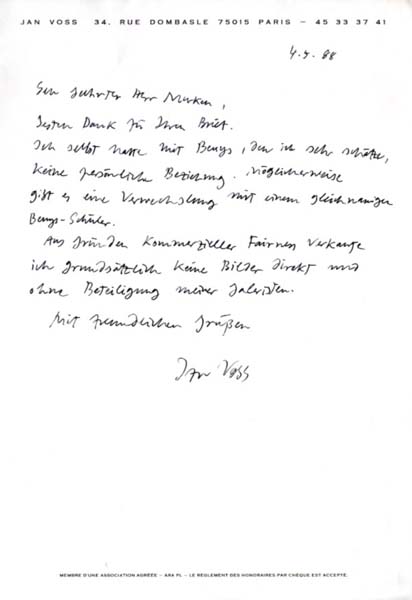 JAN VOSS 34, RUE DOMBASLE 75015 PARIS – 45 33 37 41
4.5.88
Sehr geehrter Herr Merken,
besten Dank für Ihren Brief.
Ich selbst hatte mit Beuys, den ich sehr schätze,
keine persönliche Beziehung. Möglicherweise
gibt es eine Verwechslung mit einem gleichnamigen
Beuys-Schüler.
Aus Gründen kommerzieller Fairness verkaufe
ich grundsätzlich keine Bilder direkt und
ohne Beteiligung meiner Galeristen.
Mit freundlichen Grüßen
Jan Voss
MEMBRE D'UNE ASSOCIATION AGRÉÉE – ARA PL – LE RÈGLEMENT DES HONORAIRES PAR CHÈQUE EST ACCEPTÉ.